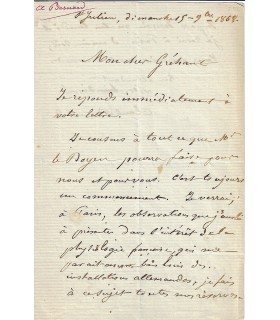 Cl Bernard
St Julien, dimanche 15 - 9bre 1868.
Mon cher Gréhant
Je réponds immédiatement à
votre lettre.
Je consens à tout ce que Mr
le Boyer pourra faire pour
nous et pour vous. c'est toujours
un commencement. Je verrai
à Paris, les observations que j'aurai
à présenter dans l'intérêt de la
physiologie française, qui me
parait encore bien loin des
installations allemandes, je fais
à ce sujet toutes mes réserves.